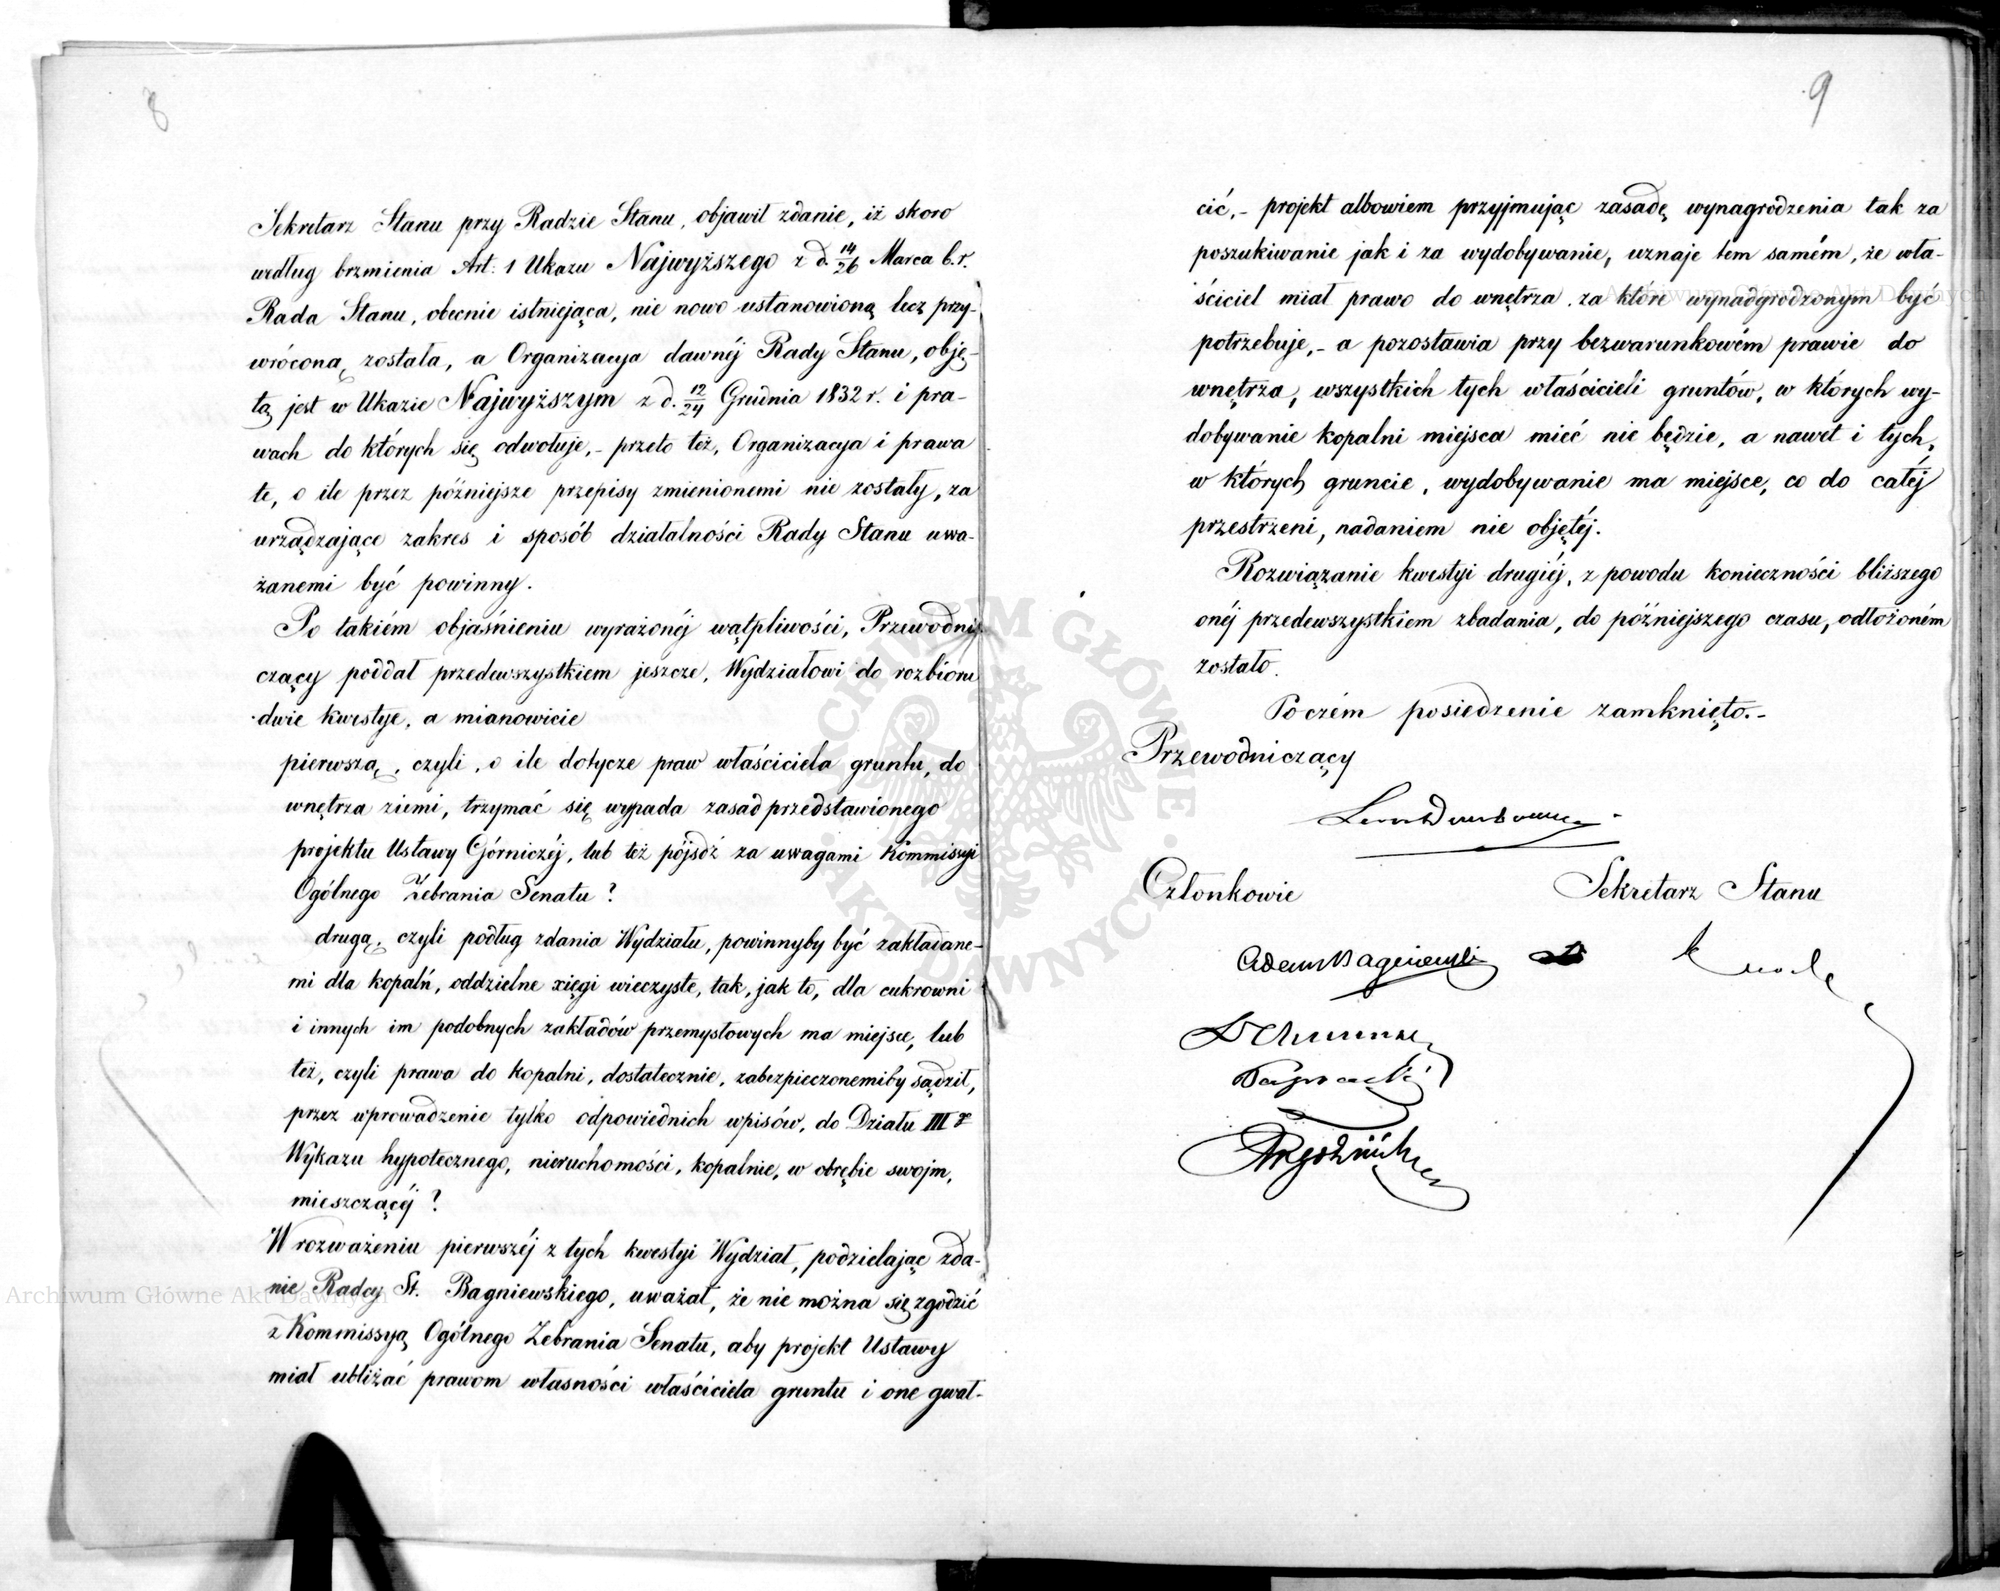 8
Sekretarz Stanu przy Radzie Stanu, objawił zdanie, iż skoro
według brzmienia Art: 1 Ukazu Najwyższego z d. 14/26 Marca b. r.
Rada Stanu, obecnie istniejąca, nie nowo ustanowioną lecz przy-
wróconą została, a Organizacya dawnéj Rady Stanu, obję-
tą jest w Ukazie Najwyższym z d. 12/24 Grudnia 1832 r. i pra-
wach do których się odwołuje,- przeto też, Organizacya i prawa
te, o ile przez późniejsze przepisy zmienionemi nie zostały, za
urządzające zakres i sposób działalności Rady Stanu uwa-
żanemi być powinny.
Po takiém objaśnieniu wyrażonéj wątpliwości, Przewodni-
czący poddał przedewszystkiem jeszcze, Wydziałowi do rozbioru
dwie kwestye, a mianowicie
pierwszą, czyli, o ile dotycze praw właściciela gruntu, do
wnętrza ziemi, trzymać się wypada zasad przedstawionego
projektu Ustawy Górniczéj, lub też pójsdź za uwagami Kommissyi
Ogólnego Zebrania Senatu?
drugą, czyli podług zdania Wydziału, powinnyby być zakładane-
mi dla kopalń, oddzielne xięgi wieczyste, tak, jak to, dla cukrowni
i innych im podobnych zakładów przemysłowych ma miejsce, lub
też, czyli prawa do kopalni, dostatecznie, zabezpieczonemiby sądził,
przez wprowadzenie tylko odpowiednich wpisów, do Działu III go
Wykazu hypotecznego, nieruchomości, kopalnie, w obrębie swojm,
mieszczącéj?
W rozważeniu pierwszéj z tych kwestyi Wydział, podzielając zda-
nie Radcy St. Bagniewskiego, uważał, że nie można się zgodzić
z Kommissyą Ogólnego Zebrania Senatu, aby projekt Ustawy
miał ubliżać prawom własności właściciela gruntu i one gwał-
9
cić,- projekt albowiem przyjmując zasadę wynagrodzenia tak za
poszukiwanie jak i za wydobywanie, uznaje tem samém, że wła-
ściciel miał prawo do wnętrza za które wynadgrodzonym być
potrzebuje,- a pozostawia przy bezwarunkowém prawie do
wnętrza, wszystkich tych właścicieli gruntów, w których wy-
dobywanie kopalni miejsca mieć nie będzie, a nawet i tych,
w których gruncie, wydobywanie ma miejsce, co do całéj
przestrzeni, nadaniem nie objętéj.
Rozwiązanie kwestyi drugiéj, z powodu konieczności bliższego
onéj przedewszystkiem zbadania, do późniejszego czasu, odłożoném
zostało.
Poczém posiedzenie zamknięto.-
Przewodniczący
Członkowie
Sekretarz Stanu
Adam Bagniewski
Archiwum Główne Akt Dawnych
Archiwum Główne Akt Dawnych
ARCHIWUM GŁÓWNE AKT DAWNYCH